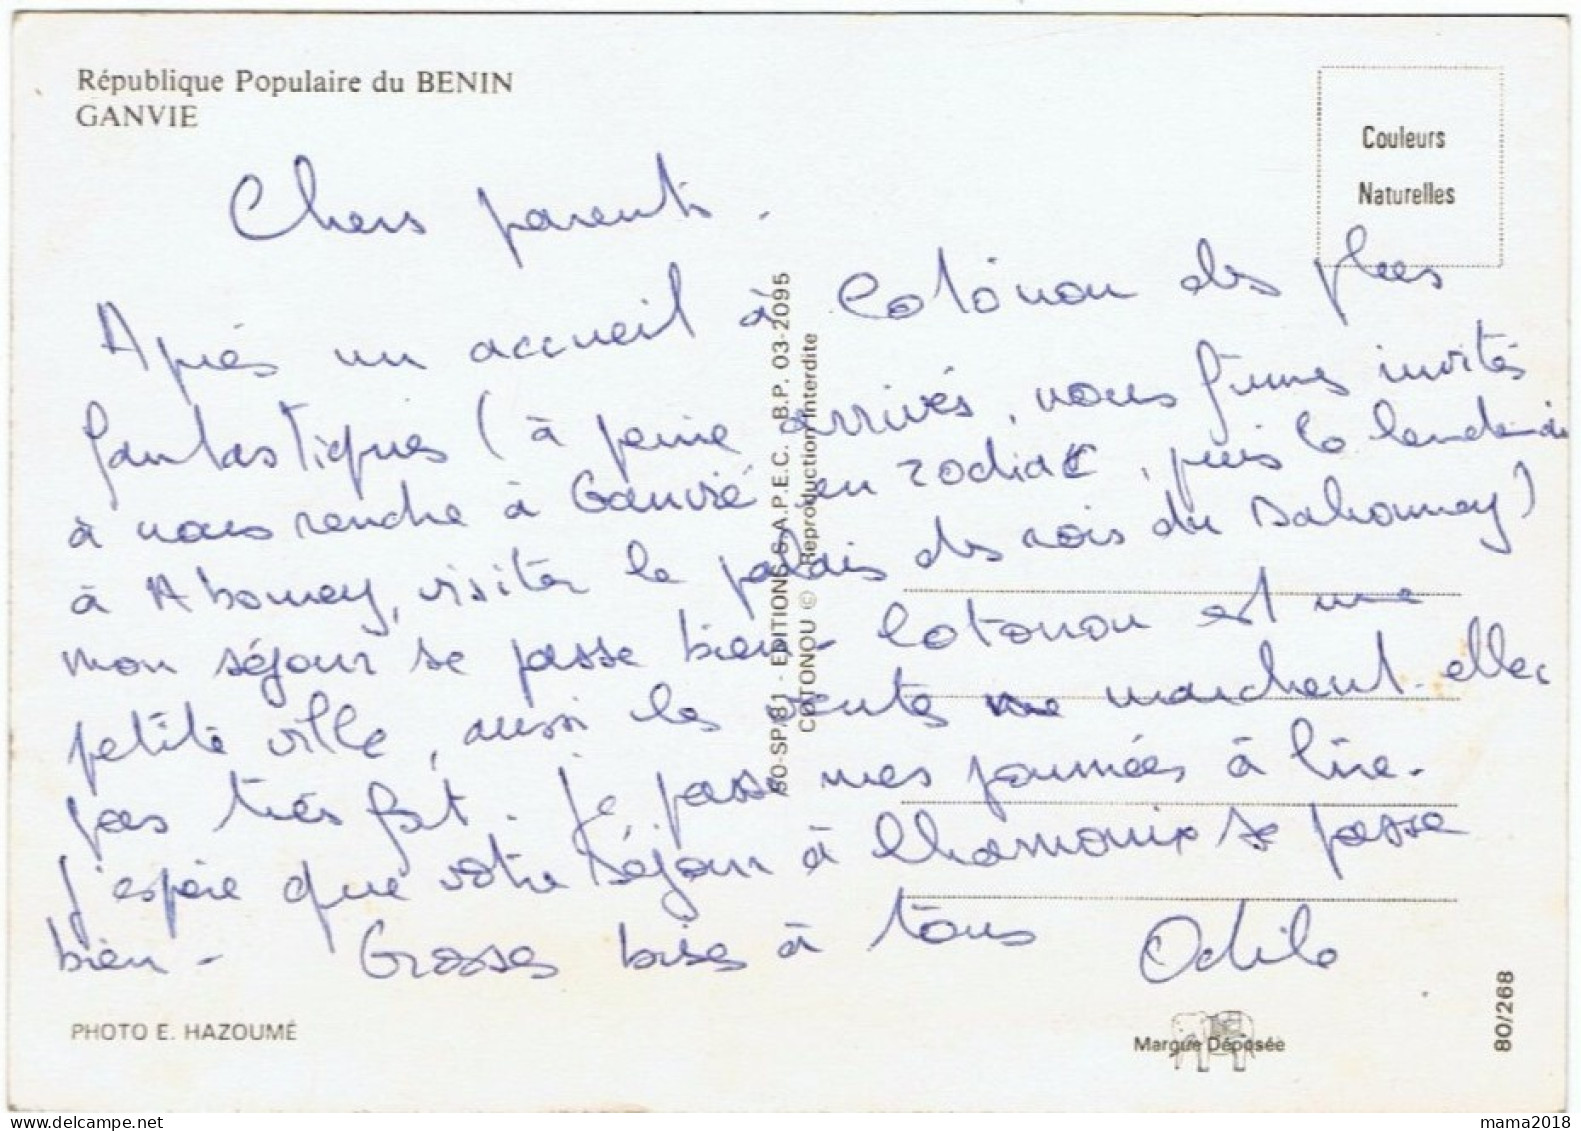 République Populaire du BENIN
GANVIE
Couleurs
Naturelles
Chers parents.
Après un accueil à Cotonou des plus
fantastiques (à peine arrivés, nous fûmes invités
à nous rendre à Ganvié en zodiac, puis le lendemain
à Abomey, visiter le palais des rois du Dahomey)
mon séjour se passe bien - Cotonou est une
petite ville, aussi les ventes ne marchent-elles
pas très fort. Je passe mes journées à lire.
J'espère que votre séjour à Chamonix se passe
bien - Grosses bises à tous Odile
80-SP/81 - EDITIONS S.A.P.E.C. B.P. 03-2095
COTONOU © Reproduction Interdite
PHOTO E. HAZOUMÉ
Marque Déposée
80/268
www.delcampe.net
mama2018